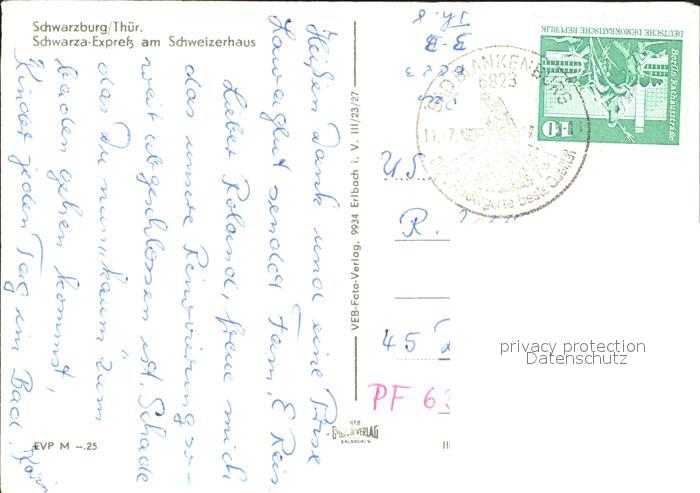 Schwarzburg/Thür.
Schwarza-Expreß am Schweizerhaus
Heißen Dank und eine Prise
Lavaglut sendet Fam. E. Reis.
Lieber Roland, freue mich
das unsere Renovierung so-
weit abgeschlossen ist. Schade
das Du nun kaum zum
baden gehen kommst,
Kinder jeden Tag im Bad.
VEB-Foto-Verlag, 9934 Erlbach i. V. III/23/27
EVP M –.25
FOTO VERLAG
ERLBACH/V.
III
6823
11.7.
beste Qualität
DEUTSCHE DEMOKRATISCHE REPUBLIK
Berlin, Rathausstraße
10
R.
45
PF 63
privacy protection
Datenschutz